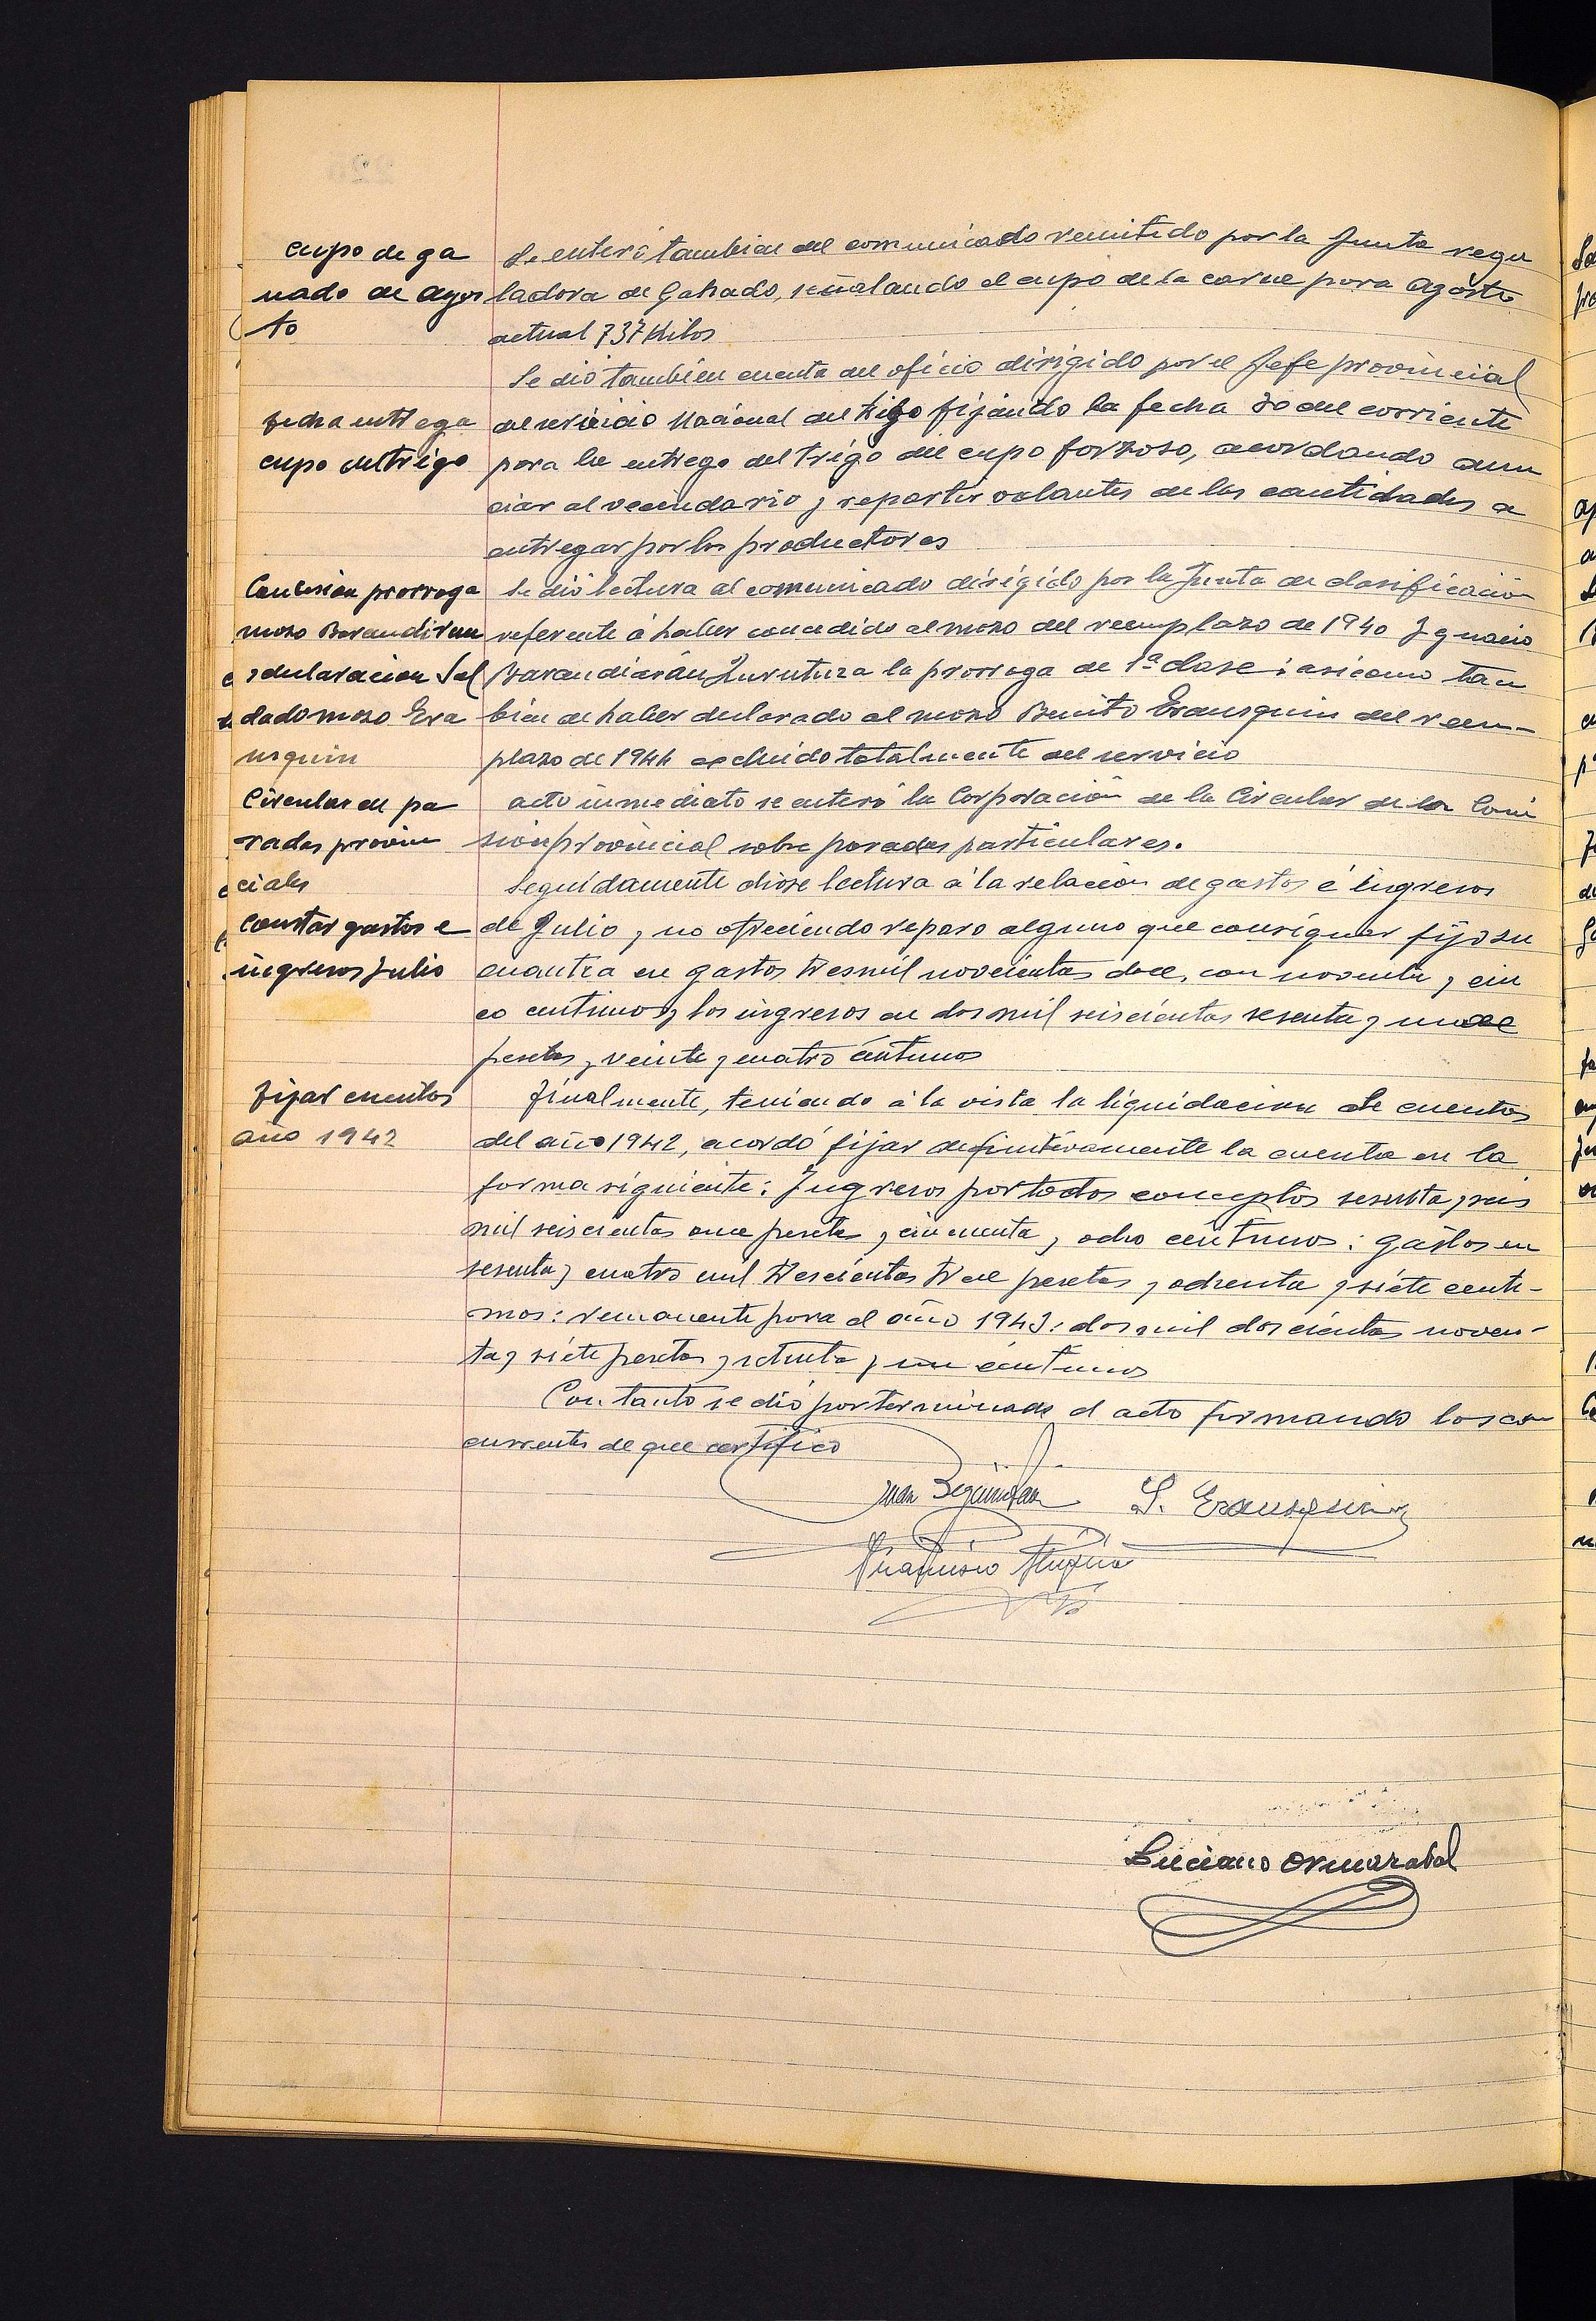 cupo de ga
nado de agos
to
Se enteró tambien del comunicado remitido por la Junta regu
ladora de Ganado, señalando el cupo de la carne para Agosto
actual 737 Kilos
Se dió también cuenta del oficio dirigido por el Jefe provincial
fecha entrega
cupo del trigo
del servicio Nacional del trigo fijando la fecha 30 del corriente
para la entrega del trigo del cupo forzoso, acordando anun
ciar al vecindario y repartir volantes de las cantidades a
entregar por los productores
Concesion prorroga
mozo Barandiran
y declaracion Sol
dado mozo Era
usquin
Se dió lectura al comunicado dirigido por la Junta de clasificación
referente á haber concedido al mozo del reemplazo de 1940 Ignacio
Barandiarán Zurutuza la prorroga de 1ª clase: asi como tam
bien de haber declarado al mozo Benito Erausquin del reem-
plazo de 1944 excluido totalmente del servicio
Circular en pa
radas provin
ciales
acto inmediato se enteró la Corporación de la Circular de la Comi
sión provincial sobre paradas particulares.
Seguidamente diose lectura á la relación de gastos é ingresos
constar gastos e
ingresos Julio
de Julio, y no ofreciendo reparo alguno que consignar fijó su
cuantia en gastos tres mil novecientas doce, con noventa y cin
co centimos y los ingresos en dos mil seiscientas sesenta y
pesetas y veinte y cuatro centimos
fijar cuentas
año 1942
Finalmente, teniendo á la vista la liquidacion de cuentas
del año 1942, acordó fijar definitivamente la cuenta en la
forma siguiente: Ingresos por todos conceptos sesenta y seis
mil seiscientas once pesetas y cincuenta y ocho centimos: gastos en
sesenta y cuatro mil trescientas trece pesetas y ochenta y siete centi-
mos: remanente para el año 1943: dos mil doscientas noven-
ta y siete pesetas y setenta y un centimos
Con tanto se dió por terminado el acto firmando los con
currentes de que certifico
Juan Beguiristain
S. Erausquin
Luciano Ormazabal